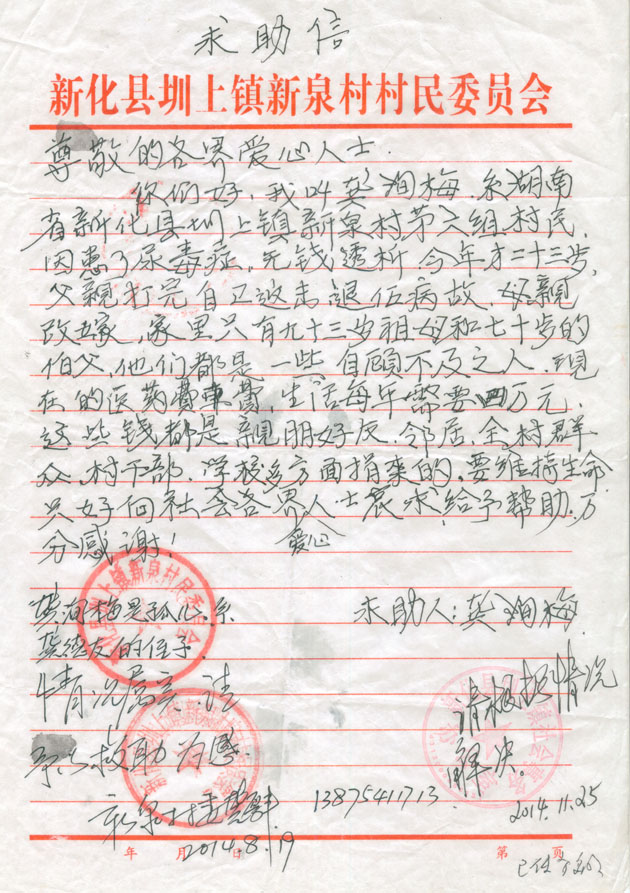 求助信
新化县圳上镇新泉村村民委员会
尊敬的各界爱心人士.
你们好,我叫龚洵梅.系湖南
省新化县圳上镇新泉村第八组村民,
因患了尿毒症,无钱透析.今年才二十三岁,
父親打完自卫 退伍病故,母親
改嫁,家里只有九十三岁祖母和七十岁的
伯父,他们都是一些自顾不及之人.现
在的医药費車費,生活每年需要四万元,
这些钱都是親朋好友.邻居,全村群
众,村干部.学校多方面捐来的,要维持生命
只好向社会各界爱心人士哀求,给予帮助,万
分感谢!
求助人:龚洵梅
龚洵梅是孤儿.系
龚德友的侄子.
情况属实.请
予以救助为感
新泉村
2014.8.19
请根据情况
解决。
13875411713
2014.11.25
年 月 日
第 页